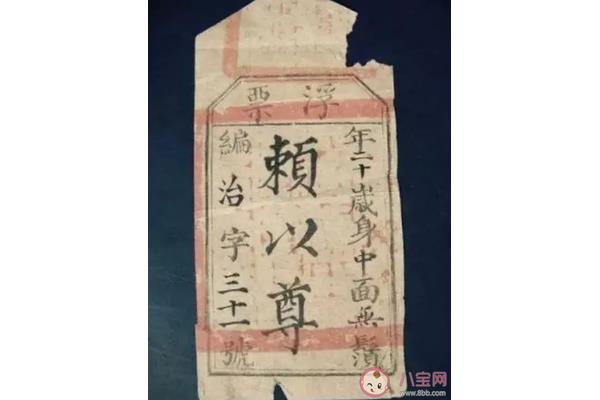 浮票
年二十歲身中面無鬚
賴以尊
編治字三十一號
八宝网
www.8bb.com